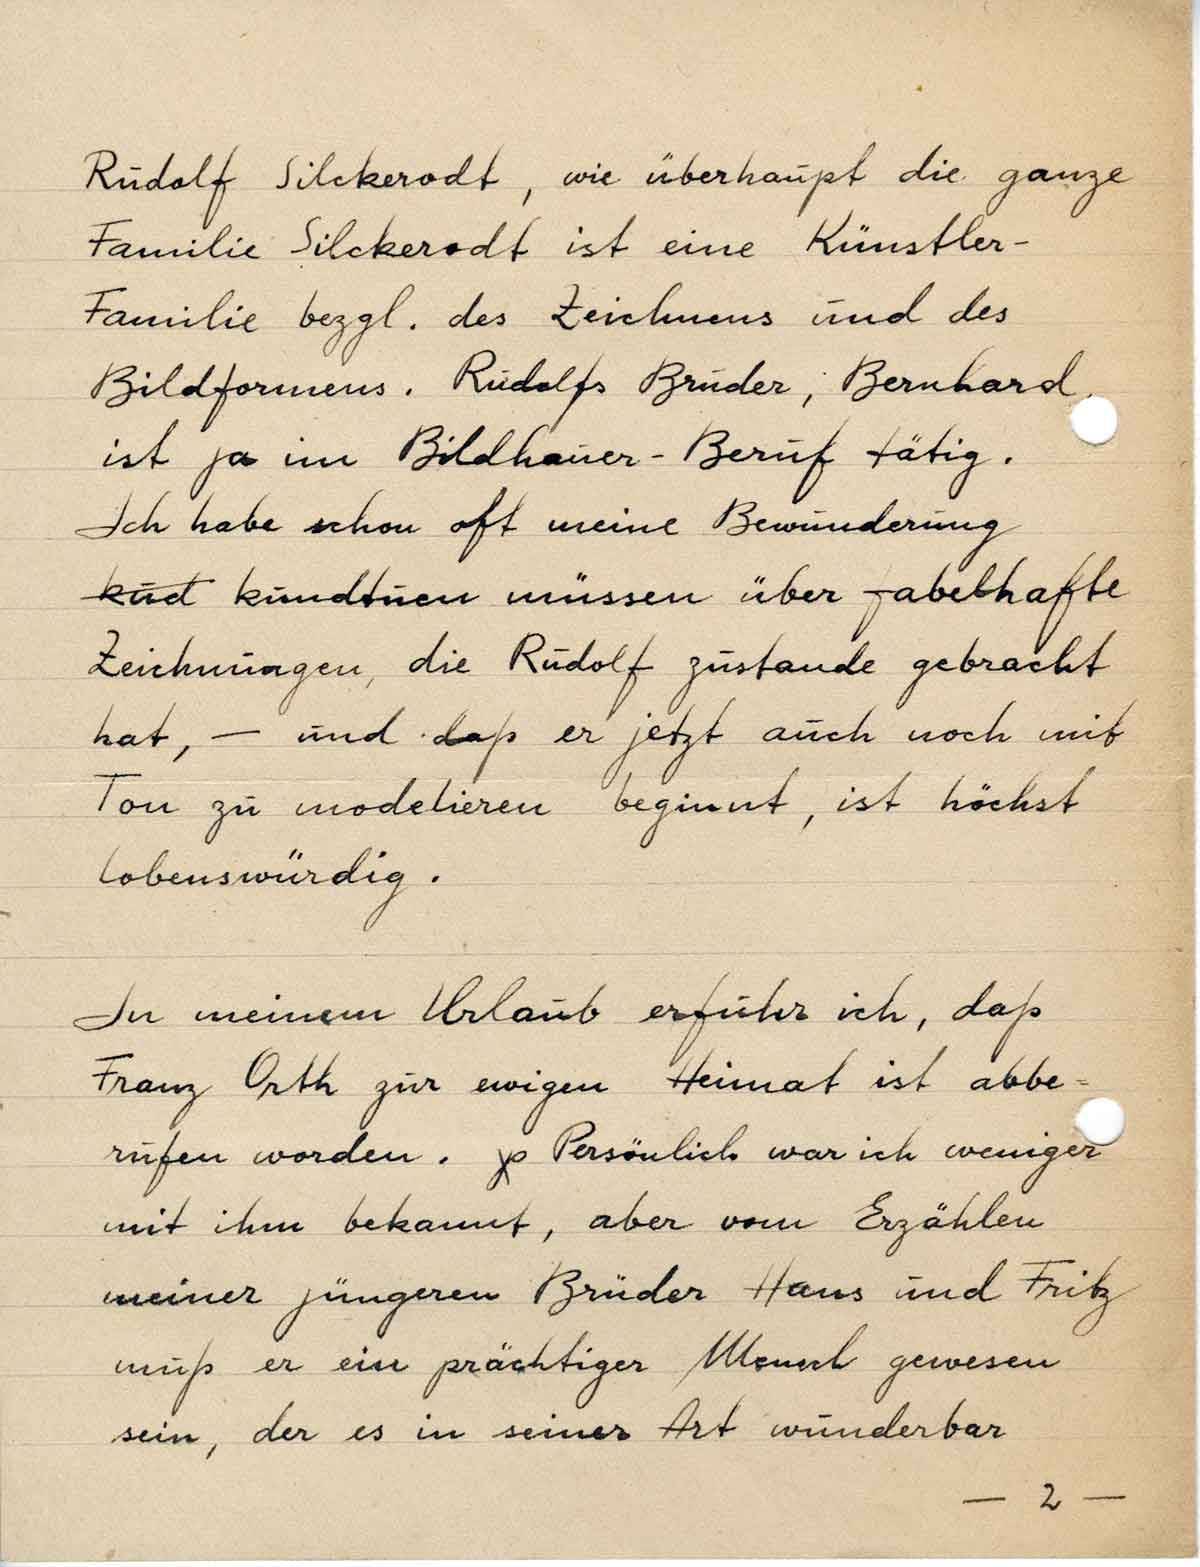 Rudolf Silckerodt, wie überhaupt die ganze
Familie Silckerodt ist eine Künstler-
Familie bezgl. des Zeichnens und des
Bildformens. Rudolfs Bruder, Bernhard,
ist ja im Bildhauer-Beruf tätig.
Ich habe schon oft meine Bewunderung
kud kundtuen müssen über fabelhafte
Zeichnungen, die Rudolf zustande gebracht
hat, — und daß er jetzt auch noch mit
Ton zu modelieren beginnt, ist höchst
lobenswürdig.
In meinem Urlaub erfuhr ich, daß
Franz Orth zur ewigen Heimat ist abbe-
rufen worden. p Persönlich war ich weniger
mit ihm bekannt, aber vom Erzählen
meiner jüngeren Brüder Hans und Fritz
muß er ein prächtiger Mensch gewesen
sein, der es in seiner Art wunderbar
— 2 —